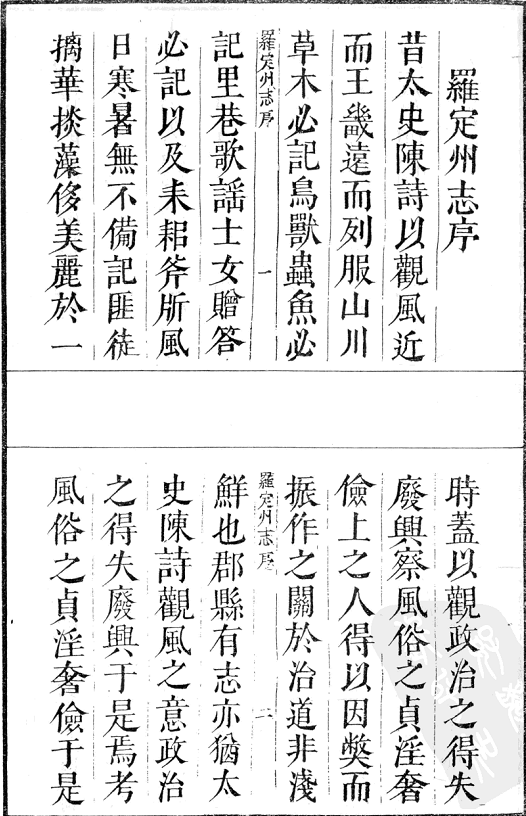 羅定州志序
昔太史陳詩以觀風近
而王畿遠而列服山川
草木必記鳥獸蟲魚必
羅定州志序 一
記里巷歌謡士女贈答
必記以及耒耜斧斨風
日寒暑無不備記匪徒
摛華掞藻侈美麗於一
時蓋以觀政治之得失
廢興察風俗之貞淫奢
儉上之人得以因獘而
振作之關於治道非淺
羅定州志序 二
鮮也郡縣有志亦猶太
史陳詩觀風之意政治
之得失廢興于是焉考
風俗之貞淫奢儉于是